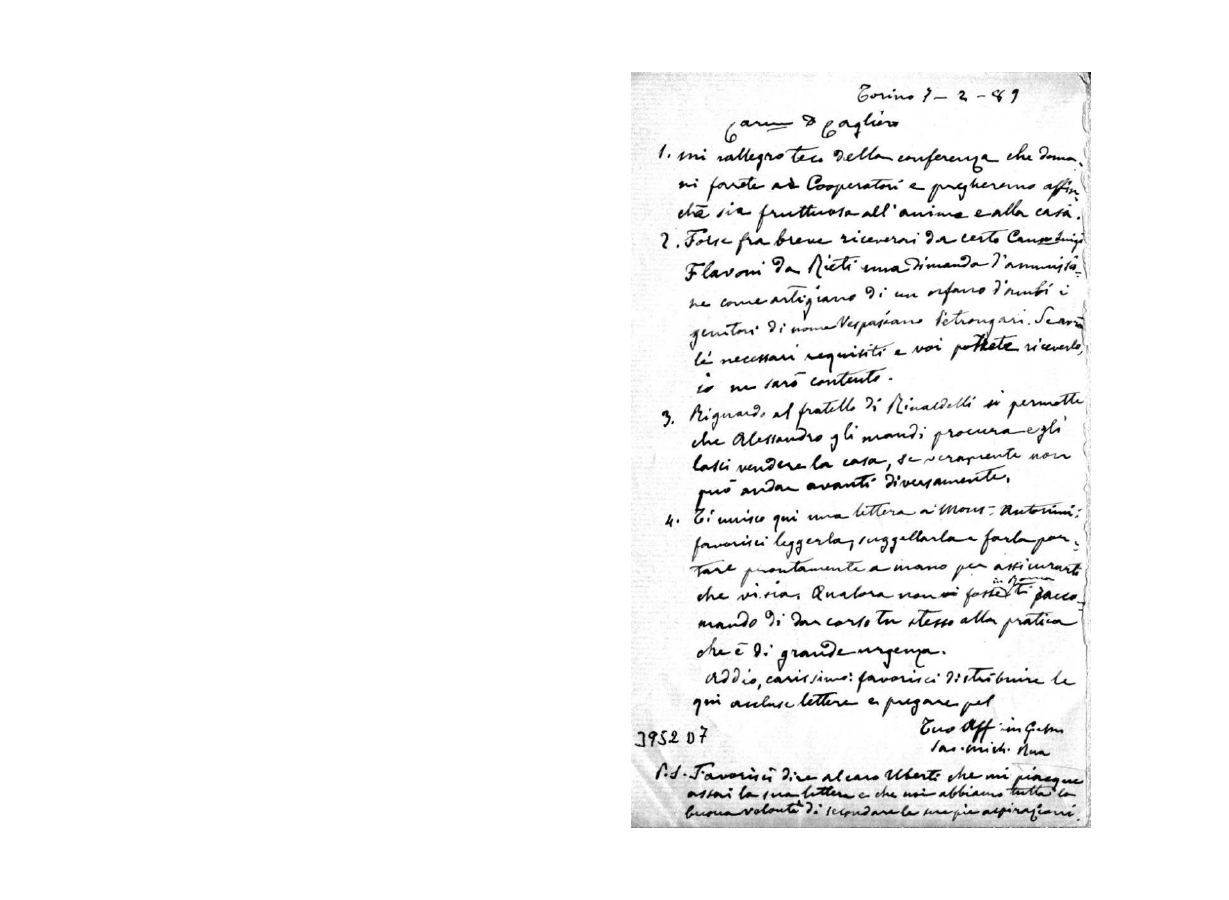 Torino 7 - 2 - 89
Car.mo D. Cagliero
1. Mi rallegro teco della conferenza che doma-
ni farete ai Cooperatori e pregheremo affin-
chè sia fruttuosa all'anima e alla casa.
2. Forse fra breve riceverai da certo Luigi
Flavoni da Rieti una dimanda d'ammissio-
ne come artigiano di un orfano d'ambi i
genitori di nome Vespasiano Petrongari. Se avrà
le necessari requisiti e voi potrete riceverlo,
io ne sarò contento.
3. Riguardo al fratello di Rinaldelli si permette
che Alessandro gli mandi procura e gli
lasci vendere la casa, se veramente non
può andar avanti diversamente.
4. Ti unisco qui una lettera a Mons. Antonini:
favorisci leggerla, suggellarla e farla por-
tare prontamente a mano per assicurarti
che vi sia. Qualora non vi fosse in Roma ti racco-
mando di dar corso tu stesso alla pratica
che è di grande urgenza.
Addio, carissimo: favorisci distribuire le
qui accluse lettere e pregare pel
Tuo Aff. in G.
Sac. Mich. Rua
3952 D7
P.S. Favorisci dire al caro Uberti che mi piacque
assai la sua lettera e che noi abbiamo tutta la
buona volontà di secondare le sue pie aspirazioni.